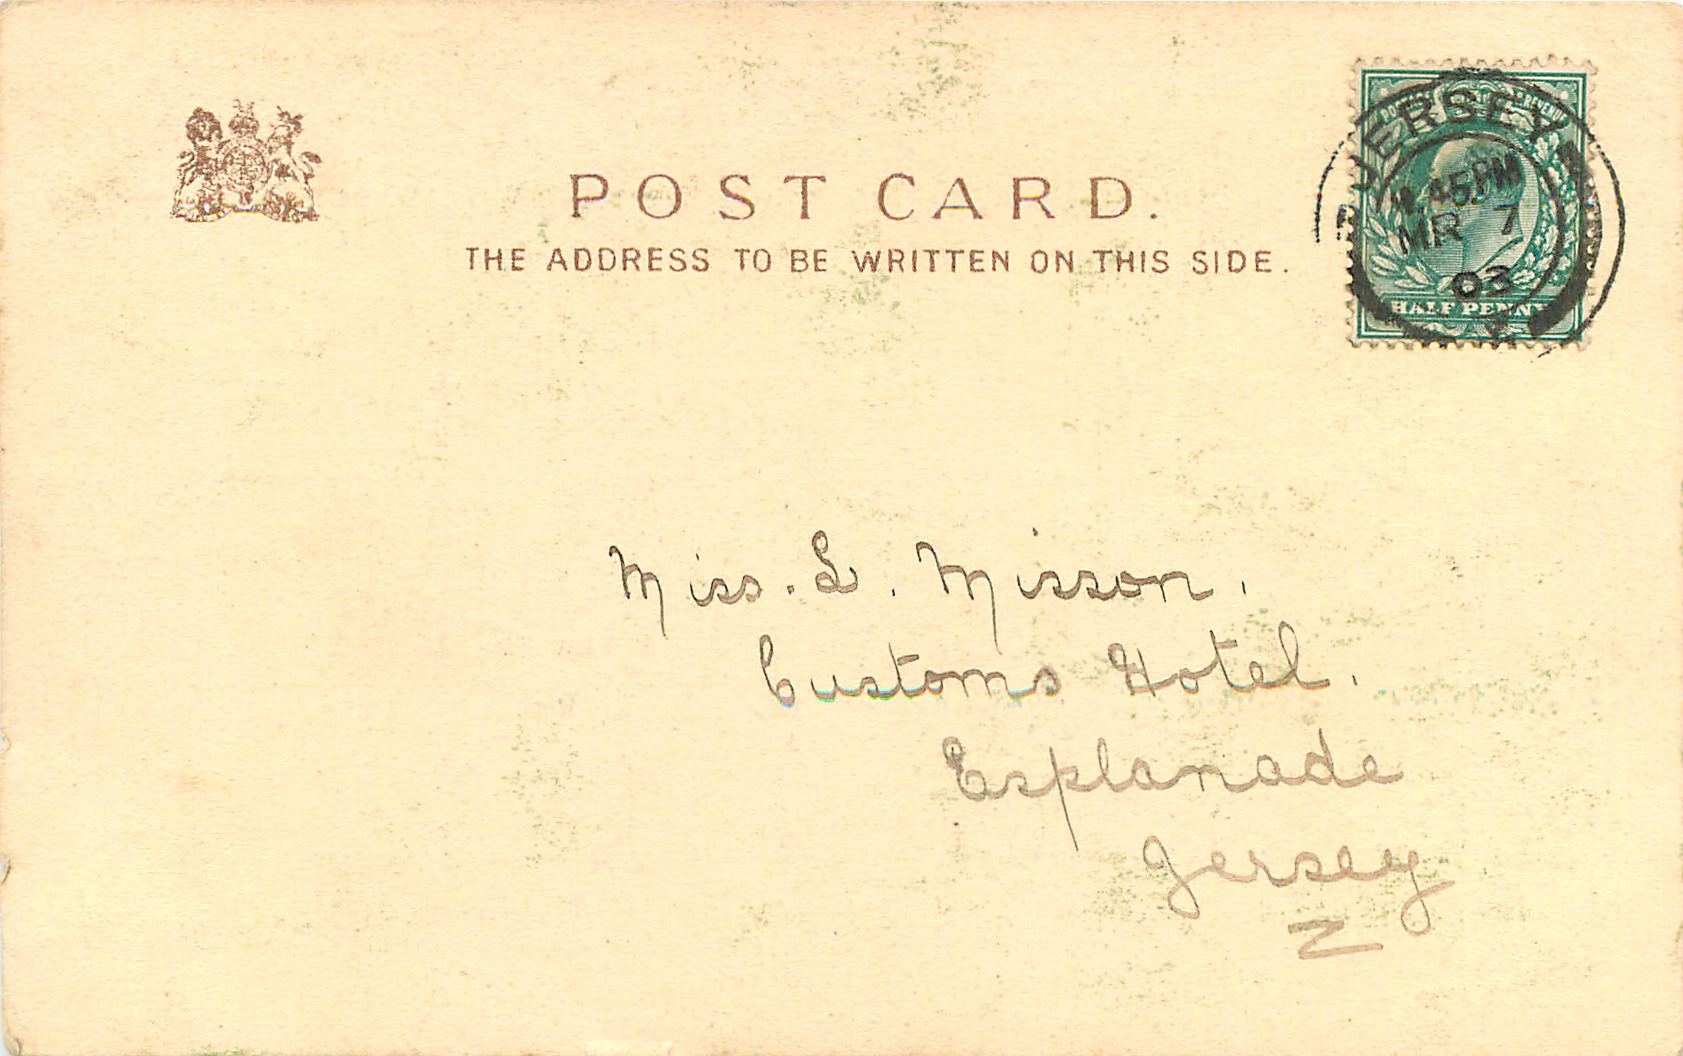 POST CARD.
THE ADDRESS TO BE WRITTEN ON THIS SIDE.
POSTAGE REVENUE
JERSEY
45 PM
MR 7
03
HALF PENNY
Miss. L. Misson.
Customs Hotel.
Esplanade
Jersey